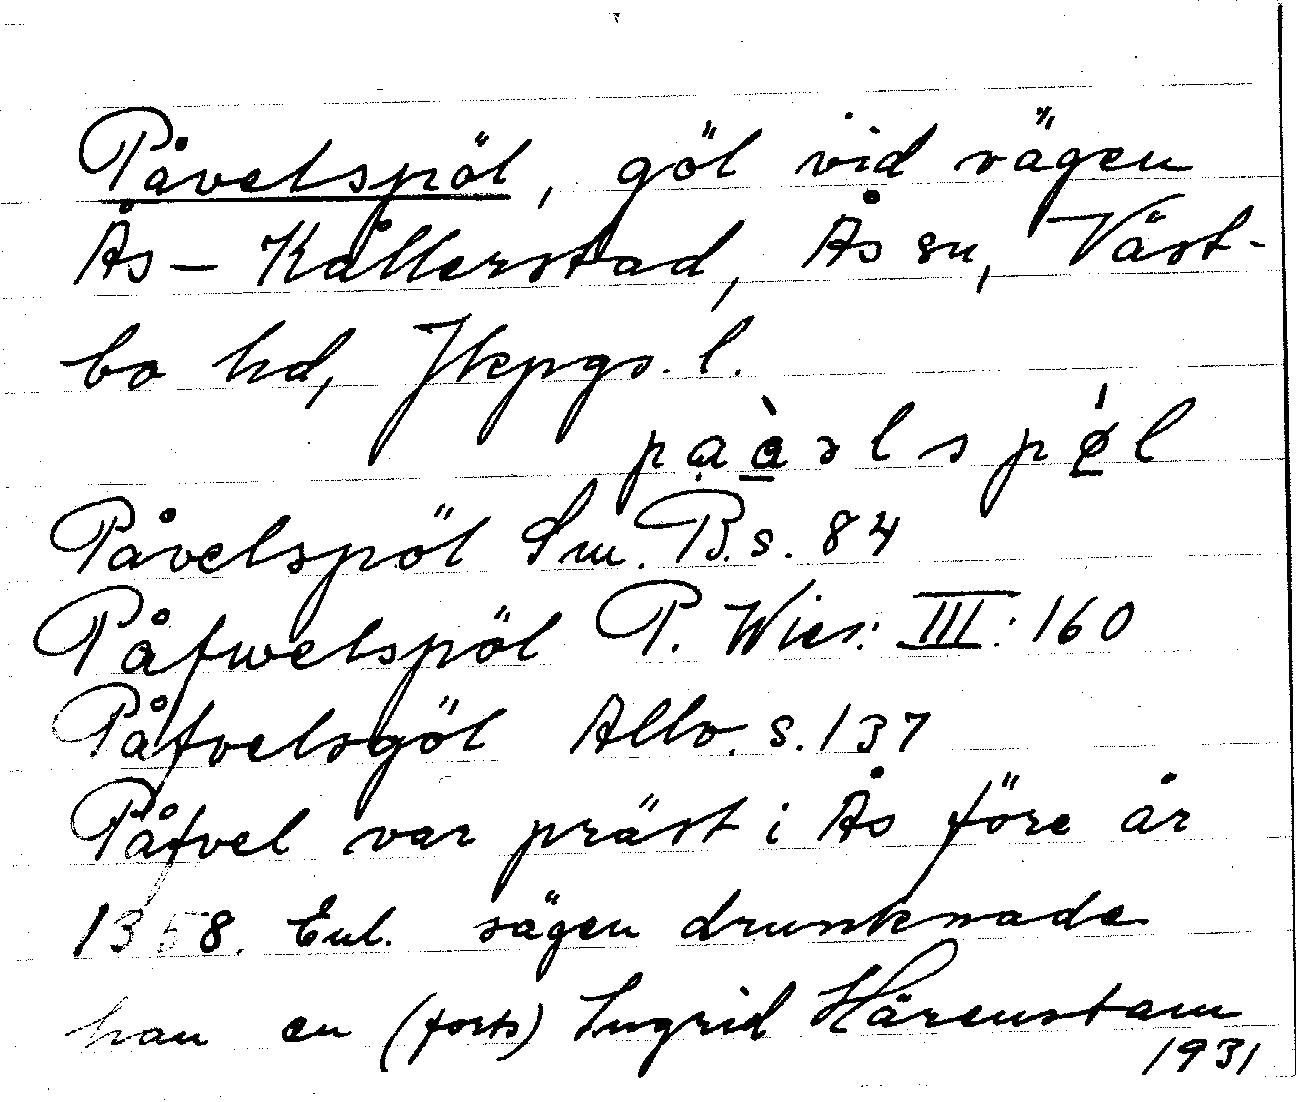 Påvelspöl, göl vid vägen
Ås – Kållerstad, Ås sn, Väst-
bo hd, Jkpgs. l.
Påvelspöl Sm. B. s. 84
Påfwelspöl P. Wies: III: 160
Påfvelsgöl Allv. s. 137
Påfvel var präst i Ås före år
1358. Enl. sägen drunknade
han en (forts) Ingrid Härenstam
1931